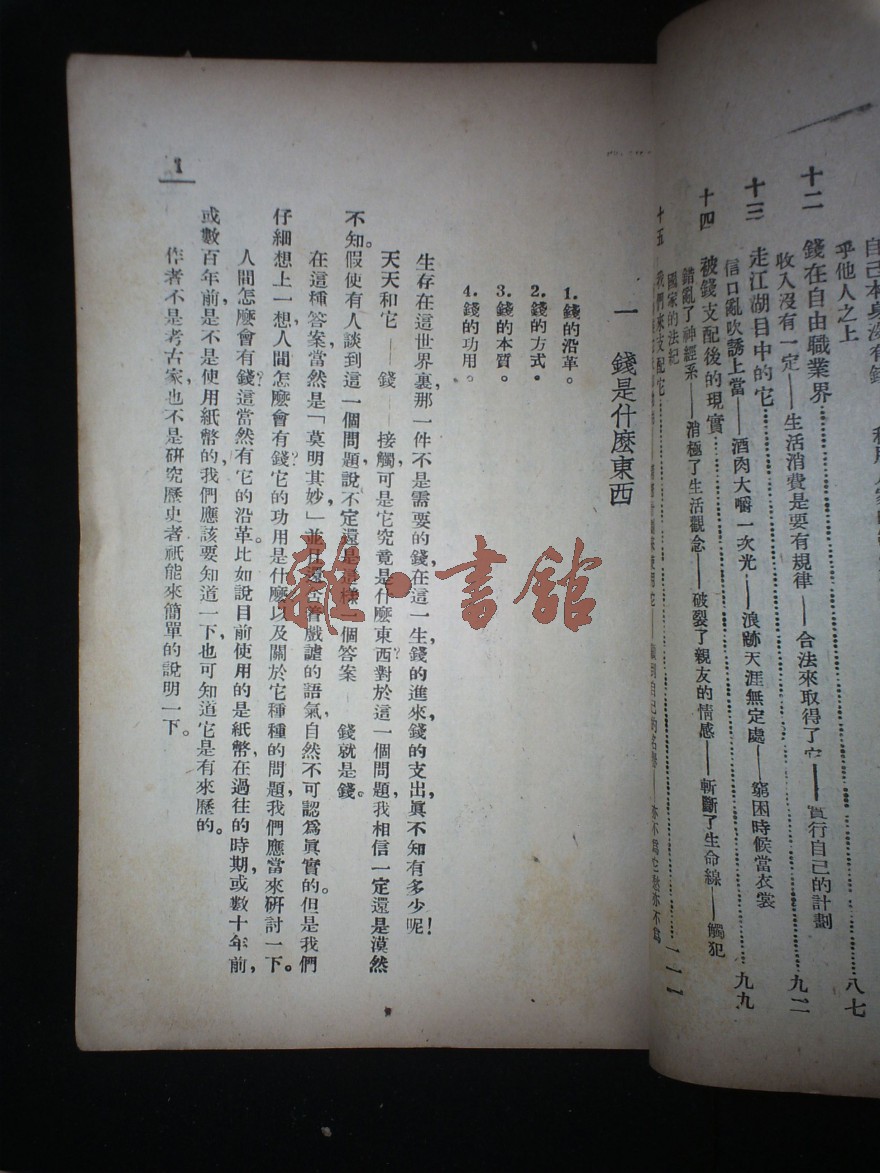 自己本身沒有錢
乎他人之上
八七
十二 錢在自由職業界
九二
收入沒有一定——生活消費是要有規律——合法來取得了它——實行自己的計劃
十三 走江湖目中的它
九九
信口亂吹誘上當——酒肉大嚼一次光——浪跡天涯無定處——窮困時候當衣裳
十四 被錢支配後的現實
錯亂了神經系——消極了生活觀念——破裂了親友的情感——斬斷了生命線——觸犯
國家的法紀
十五 我們來支配它
一一一
一 錢是什麼東西
1.錢的沿革。
2.錢的方式。
3.錢的本質。
4.錢的功用。
生存在這世界裏,那一件不是需要的錢,在這一生,錢的進來,錢的支出,眞不知有多少呢!
天天和它——錢——接觸,可是它究竟是什麼東西?對於這一個問題,我相信一定還是漠然
不知。假使有人談到這一個問題,說不定還是這樣一個答案——錢就是錢。
在這種答案,當然是「莫明其妙」,並且還含着戲謔的語氣,自然不可認爲眞實的。但是我們
仔細想上一想,人間怎麼會有錢?它的功用是什麼?以及關於它種種的問題,我們應當來硏討一下。
人間怎麼會有錢?這當然有它的沿革。比如說目前使用的是紙幣,在過往的時期,或數十年前,
或數百年前,是不是使用紙幣的,我們應該要知道一下,也可知道它是有來歷的。
作者不是考古家,也不是硏究歷史者,祇能來簡單的說明一下。
1
雜·書館